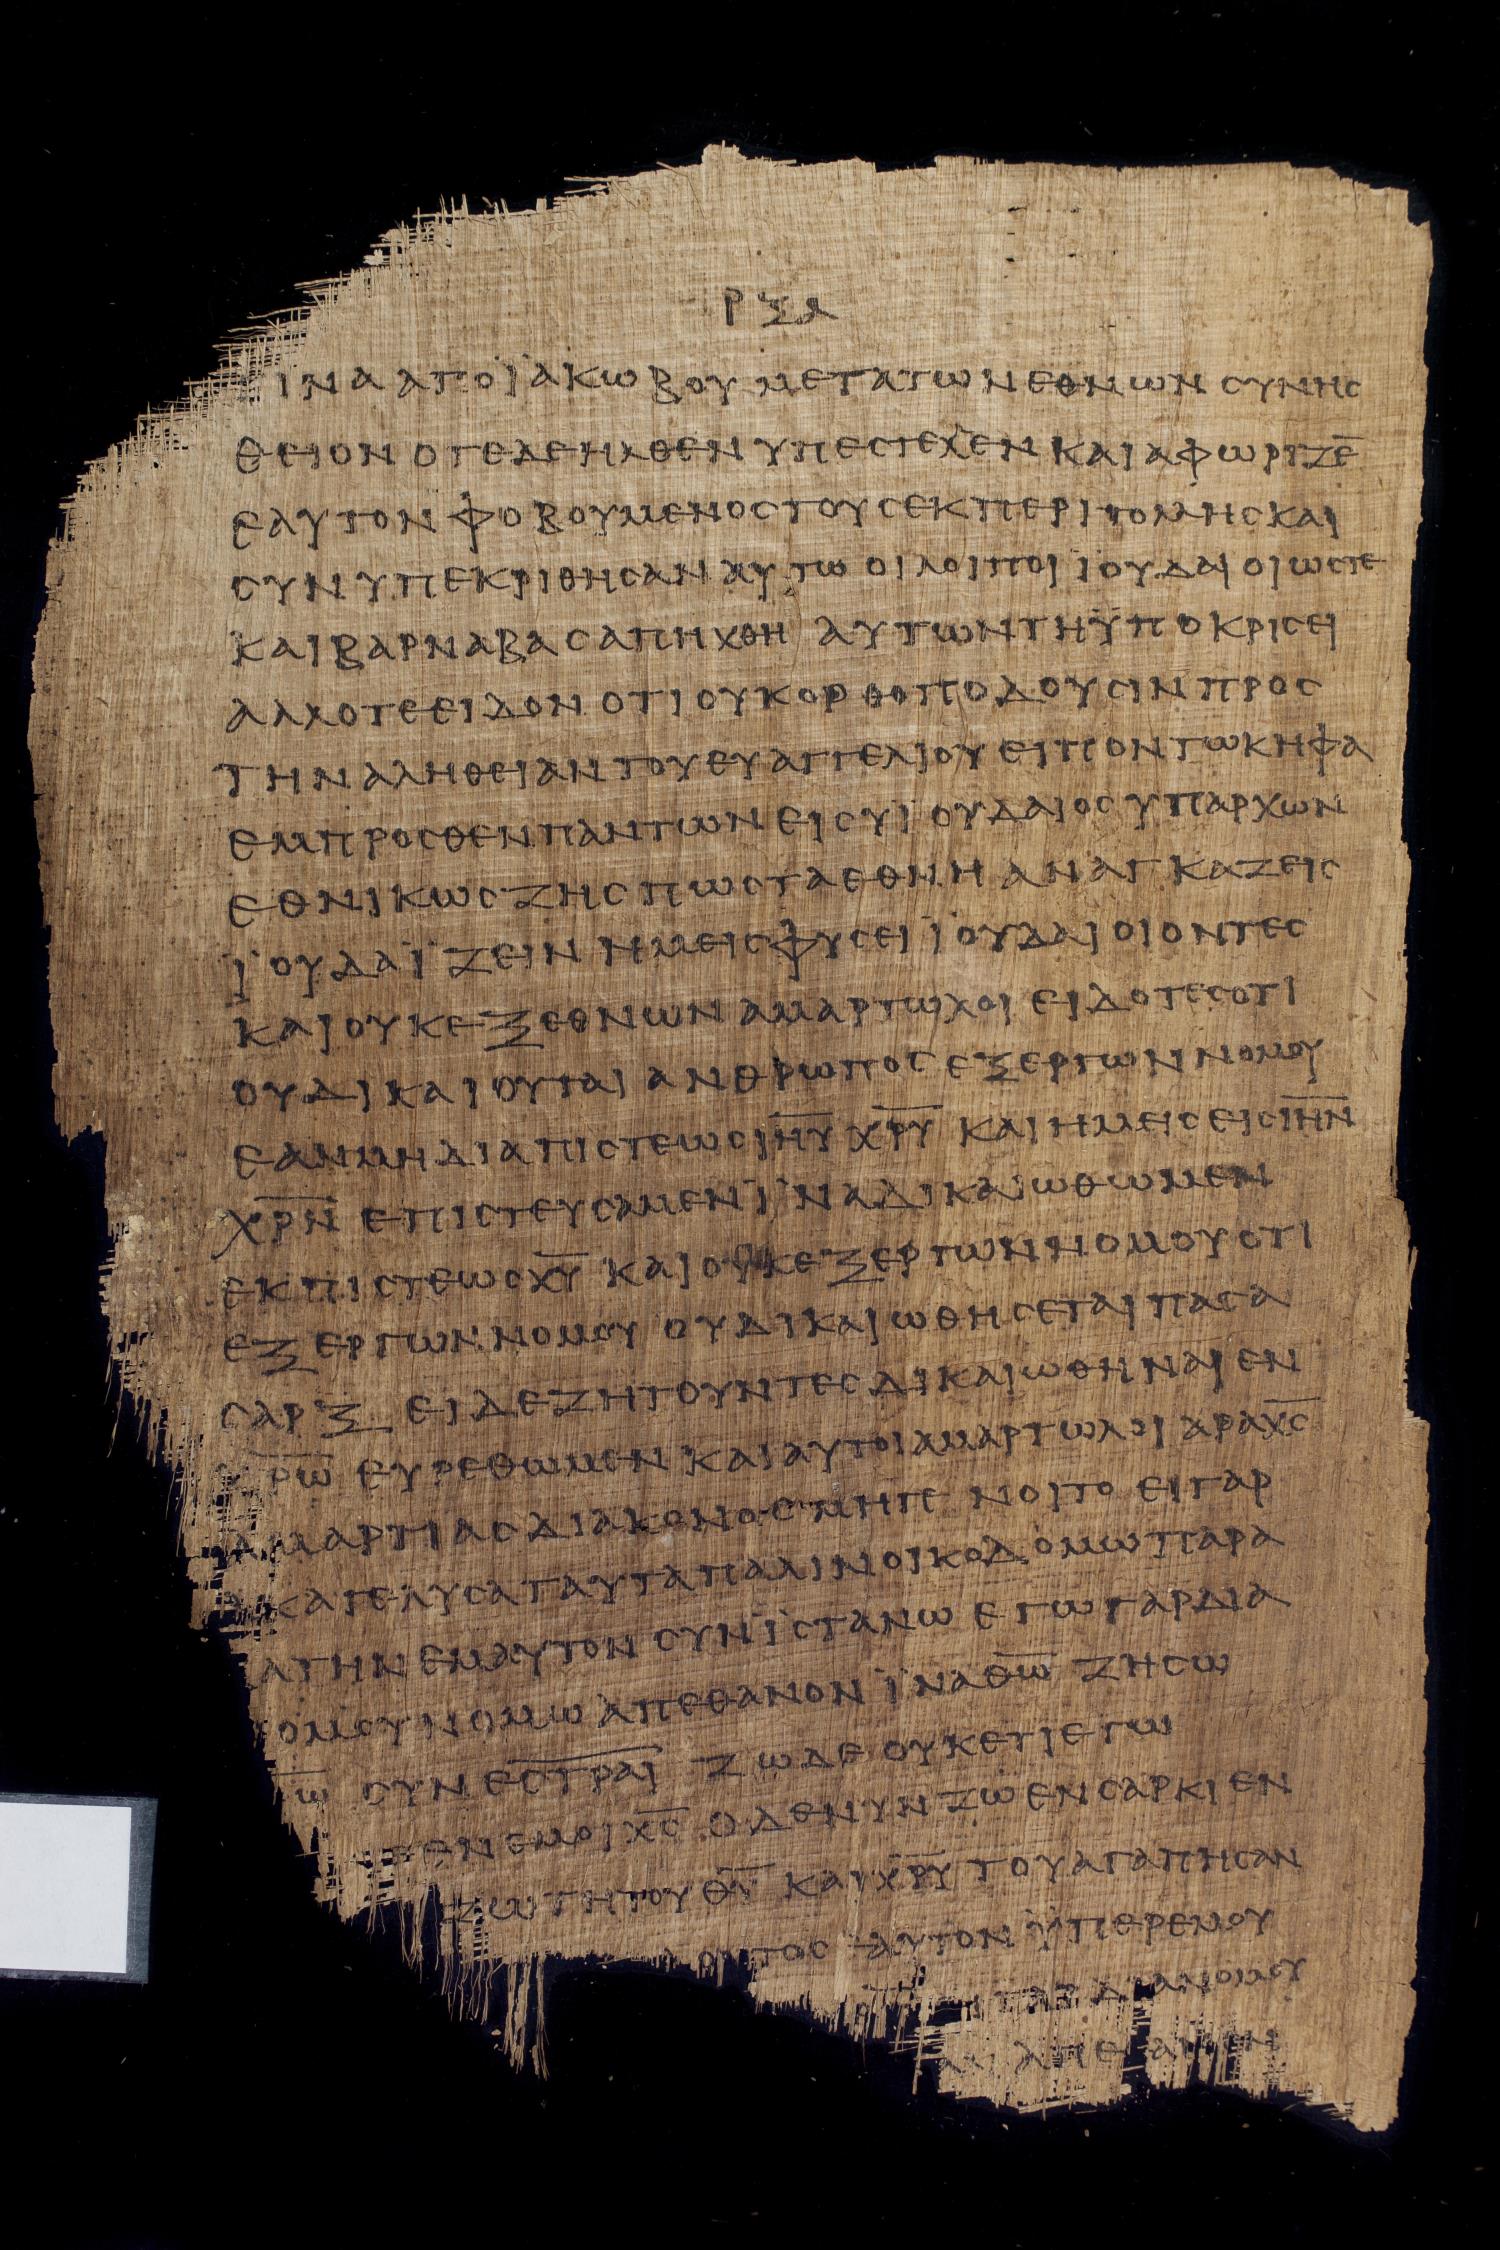 ΡΞΑ
ΤΙΝΑ ΑΠΟ ΪΑΚΩΒΟΥ ΜΕΤΑ ΤΩΝ ΕΘΝΩΝ ϹΥΝΗϹ
ΘΕΙΟΝ ΟΤΕ ΔΕ ΗΛΘΕΝ ΥΠΕϹΤΕΛΛΕΝ ΚΑΙ ΑΦΩΡΙΖΕ̅
ΕΑΥΤΟΝ ΦΟΒΟΥΜΕΝΟϹ ΤΟΥϹ ΕΚ ΠΕΡΙΤΟΜΗϹ ΚΑΙ
ϹΥΝΥΠΕΚΡΙΘΗϹΑΝ ΑΥΤΩ ΟΙ ΛΟΙΠΟΙ ΪΟΥΔΑΙΟΙ ΩϹΤΕ
ΚΑΙ ΒΑΡΝΑΒΑϹ ΑΠΗΧΘΗ ΑΥΤΩΝ ΤΗ ΫΠΟΚΡΙϹΕΙ
ΑΛΛ ΟΤΕ ΕΙΔΟΝ ΟΤΙ ΟΥΚ ΟΡΘΟΠΟΔΟΥϹΙΝ ΠΡΟϹ
ΤΗΝ ΑΛΗΘΕΙΑΝ ΤΟΥ ΕΥΑΓΓΕΛΙΟΥ ΕΙΠΟΝ ΤΩ ΚΗΦΑ
ΕΜΠΡΟϹΘΕΝ ΠΑΝΤΩΝ ΕΙ ϹΥ ΪΟΥΔΑΙΟϹ ΥΠΑΡΧΩΝ
ΕΘΝΙΚΩϹ ΖΗϹ ΠΩϹ ΤΑ ΕΘΝΗ ΑΝΑΓΚΑΖΕΙϹ
ΪΟΥΔΑΪΖΕΙΝ ΗΜΕΙϹ ΦΥϹΕΙ ΪΟΥΔΑΙΟΙ ΟΝΤΕϹ
ΚΑΙ ΟΥΚ ΕΞ ΕΘΝΩΝ ΑΜΑΡΤΩΛΟΙ ΕΙΔΟΤΕϹ ΟΤΙ
ΟΥ ΔΙΚΑΙΟΥΤΑΙ ΑΝΘΡΩΠΟϹ ΕΞ ΕΡΓΩΝ ΝΟΜΟΥ
ΕΑΝ ΜΗ ΔΙΑ ΠΙϹΤΕΩϹ Ι̅Η̅Υ̅ Χ̅Ρ̅Υ̅ ΚΑΙ ΗΜΕΙϹ ΕΙϹ Ι̅Η̅Ν̅
Χ̅Ρ̅Ν̅ ΕΠΙϹΤΕΥϹΑΜΕΝ ΪΝΑ ΔΙΚΑΙΩΘΩΜΕΝ
ΕΚ ΠΙϹΤΕΩϹ Χ̅Υ̅ ΚΑΙ ΟΥΚ ΕΞ ΕΡΓΩΝ ΝΟΜΟΥ ΟΤΙ
ΕΞ ΕΡΓΩΝ ΝΟΜΟΥ ΟΥ ΔΙΚΑΙΩΘΗϹΕΤΑΙ ΠΑϹΑ
ϹΑΡΞ ΕΙ ΔΕ ΖΗΤΟΥΝΤΕϹ ΔΙΚΑΙΩΘΗΝΑΙ ΕΝ
Χ̅Ρ̅Ω̅ ΕΥΡΕΘΩΜΕΝ ΚΑΙ ΑΥΤΟΙ ΑΜΑΡΤΩΛΟΙ ΑΡΑ Χ̅Ϲ̅
ΑΜΑΡΤΙΑϹ ΔΙΑΚΟΝΟϹ ΜΗ ΓΕΝΟΙΤΟ ΕΙ ΓΑΡ
Α ΚΑΤΕΛΥϹΑ ΤΑΥΤΑ ΠΑΛΙΝ ΟΙΚΟΔΟΜΩ ΠΑΡΑ
ΑΤΗΝ ΕΜΑΥΤΟΝ ϹΥΝΪϹΤΑΝΩ ΕΓΩ ΓΑΡ ΔΙΑ
ΟΜΟΥ ΝΟΜΩ ΑΠΕΘΑΝΟΝ ΪΝΑ Θ̅Ω̅ ΖΗϹΩ
Ω̅ ϹΥΝΕϹ̅Τ̅Ρ̅Α̅Ι̅ ΖΩ ΔΕ ΟΥΚΕΤΙ ΕΓΩ
ΕΝ ΕΜΟΙ Χ̅Ϲ̅ Ο ΔΕ ΝΥΝ ΖΩ ΕΝ ϹΑΡΚΙ ΕΝ
ΖΩ ΤΗ ΤΟΥ Θ̅Υ̅ ΚΑΙ Χ̅Ρ̅Υ̅ ΤΟΥ ΑΓΑΠΗϹΑΝ
ΟΝΤΟϹ ΑΥΤΟΝ ΫΠΕΡ ΕΜΟΥ
ΓΑΡ ΔΙΑ ΝΟΜΟΥ
ΑΠΕΘΑΝΕΝ